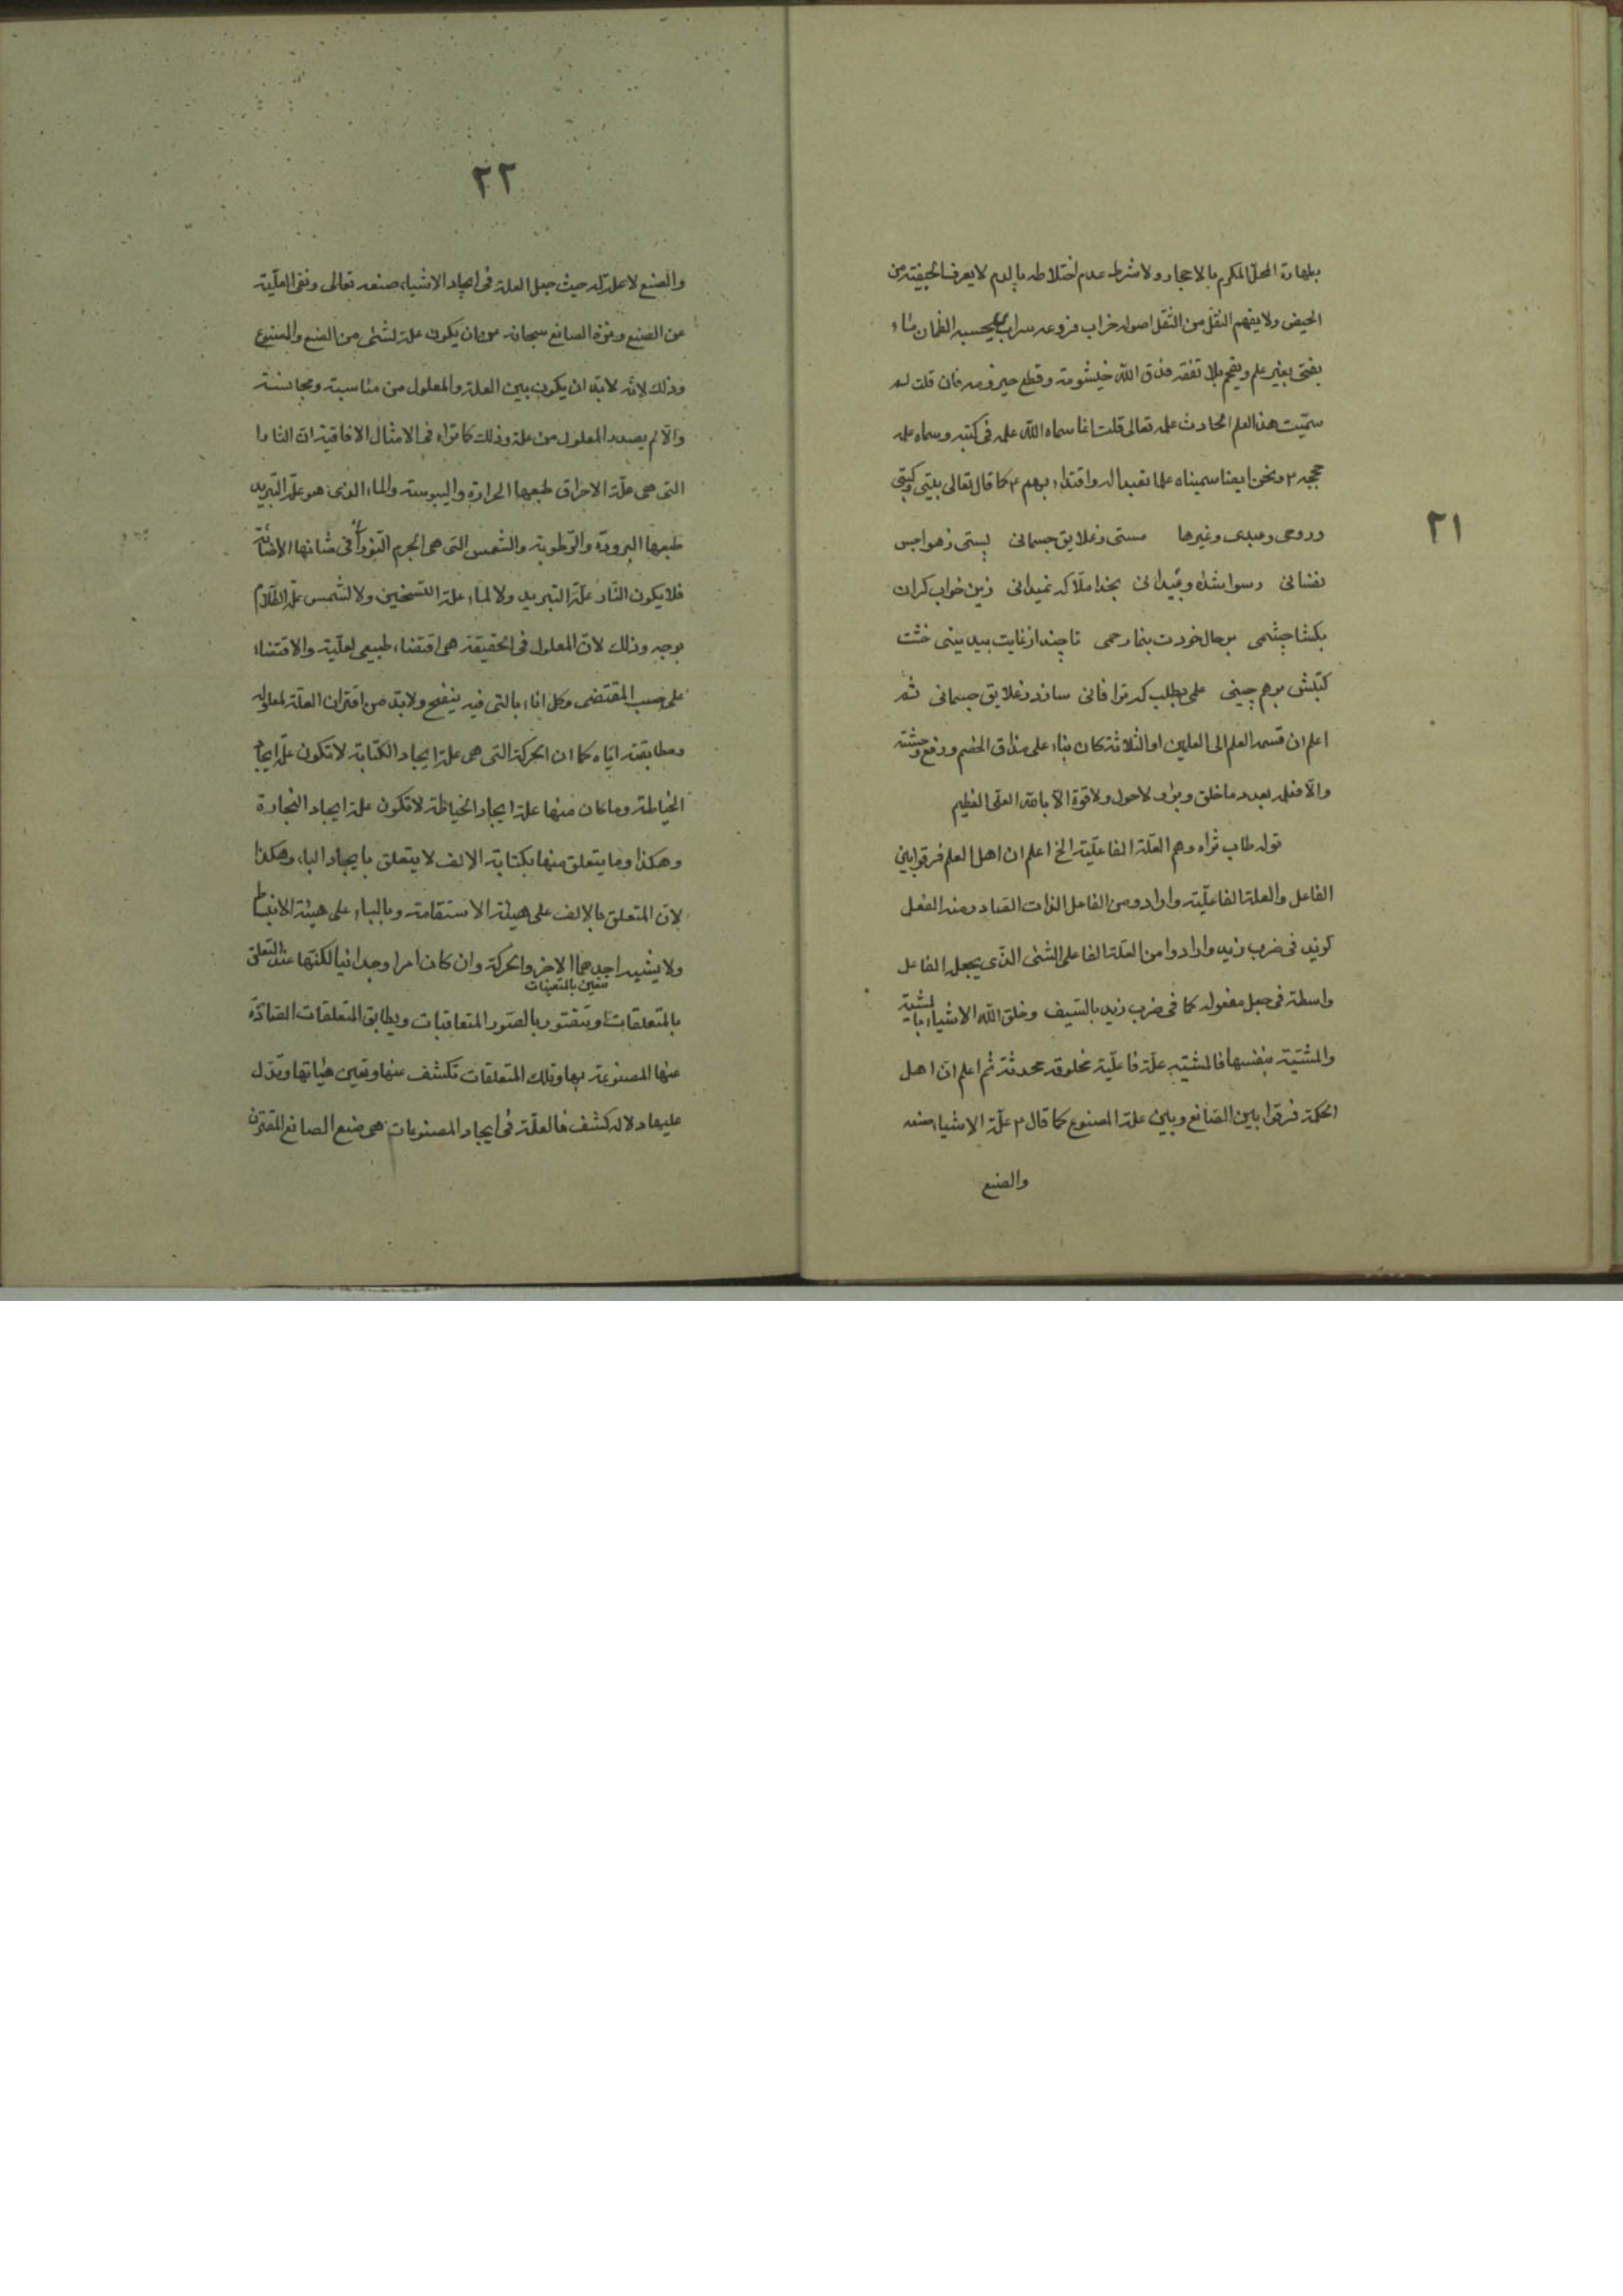 ٢١
بطهارة المحل المكرم بالاحجار ولا شرط عدم اختلاطه بالدم لا يعرف الخيفة من
الحيض ولا يفهم النقل من الثقل اصوله خراب فروعه سراب يحسبه الظمان ماء
يفتى بغير علم ويفحم بلا تفقه فدق الله خيشومه وقطع حيزومه فان قلت لم
سميت هذا العلم الحادث علمه تعالى قلت انما سماه الله علمه فى كتبه وسماه علمه
حججه ٣ ونحن ايضا سميناه علما تعبدا له واقتداء بهم ٤ كما قال تعالى بيتى وكتبى
وروحى وعبدى وغيرها مستى زعلايق جسمانى پستى زهواجس
نفسانى رسوا شده وبيدانى بخدا ملا كه نميدانى زين خواب كران
بكشا چشمى بر حال خودت بنما رحمى تا چند از غايت بيدينى خشت
كتبش بر هم چينى علمى بطلب كه ترا فانى سازد زعلايق جسمانى ثم
اعلم ان قسمه العلم الى العلمين او الثلاثة كان بناء على مذاق الخصم ودفع وحشته
والا فعلمه بعدد ما خلق وبرء ولا حول ولا قوة الا بالله العلى العظيم
قوله طاب ثراه وهم العلة الفاعلية الخ اعلم ان اهل العلم فرقوا بين
الفاعل والعلة الفاعلية وارادو من الفاعل الذات الصادر منه الفعل
كزيد فى ضرب زيد وارادوا من العلة الفاعلى الشئى الذى يجعله الفاعل
واسطة فى جعل مفعوله كما فى ضرب زيد بالسيف وخلق الله الاشياء بالمشية
والمشية بنفسها فالمشيه علة فاعلية مخلوقه محدثة ثم اعلم ان اهل
الحكمة فرقوا بين الصانع وبين علة المصنوع كما قال ٣ علة الاشياء صنعه
والصنع
٢٢
والصنع لا علة له حيث جعل العلة فى ايجاد الاشياء صنعه تعالى ونفى العلية
عن الصنع ونزه الصانع سبحانه عن ان يكون علة لشئى من الصنع والمصنوع
وذلك لانه لابد ان يكون بين العلة والمعلول من مناسبة ومجانسة
والا لم يصدر المعلول من علة وذلك كما تراه فى الامثال الافاقية ان النار
التى هى علة الاحراق طبعها الحرارة واليبوسة والماء الذى هو علة التبريد
طبعها البرودة والرطوبة والشمس التى هى الجرم النورانى شانها الاضائة
فلا يكون النار علة التبريد ولا الماء علة التسخين ولا الشمس علة الظلام
بوجه وذلك لان المعلول فى الحقيقة هى اقتضاء طبيعى لعلية والاقتضاء
على حسب المقتضى وكل اناء بالتى فيه ينضح ولابد من اقتران العلة لمعلوله
ومطابقته اياه كما ان الحركة التى هى علة ايجاد الكتابة لا تكون علة ايجاد
الخياطة وما كان منها علة ايجاد الخياطة لا تكون علة ايجاد النجارة
وهكذا وما يتعلق منها بكتابة الالف لا يتعلق بايجاد الباء وهكذا
لان المتعلق بالالف على هيئة الاستقامة وبالباء على هيئة الانبساط
ولا يشبه احدهما الاخر والحركة وان كان امرا وحدانيا لكنها عند التعلق
تتعين بالتعينات
بالمتعلقات وتتصور بالصور المتعاقبات ويطابق المتعلقات الصادرة
عنها المصنوعة بها وتلك المتعلقات تكشف عنها وتعين هياتها وتدل
عليها دلالة كشف فالعلة فى ايجاد المصنوعات هى صنع الصانع المقترن